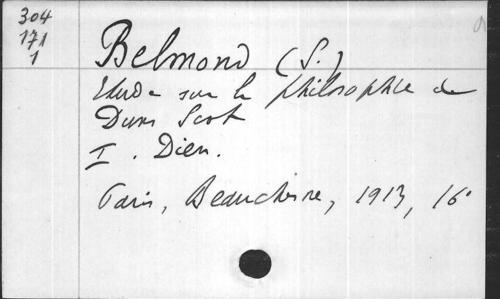 304
171
1
Belmond (S.)
Etude sur la philosophie de
Duns Scot
I. Dieu.
Paris, Beauchesne, 1913, 16°